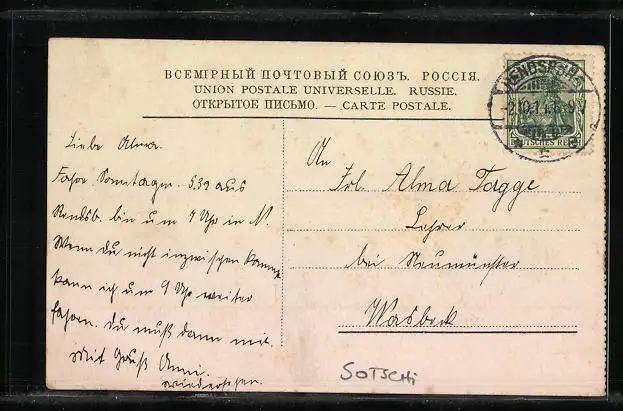 ВСЕМІРНЫЙ ПОЧТОВЫЙ СОЮЗЪ. РОССІЯ.
UNION POSTALE UNIVERSELLE. RUSSIE.
ОТКРЫТОЕ ПИСЬМО. — CARTE POSTALE.
RENDSBURG
DEUTSCHES REICH
Liebe Alma.
Fahre Sonntagm. 5.39 aus
Rendsb. bin um 7 Uhr in N.
Wenn du nicht inzwischen kannst
kann ich um 9 Uhr weiter
fahren. Du mußt dann mit.
Mit Gruß Anni
wiedersehen.
An
Frl. Alma Tagge
Lehrer
bei Neumünster
Wasbek
SOTSCHi